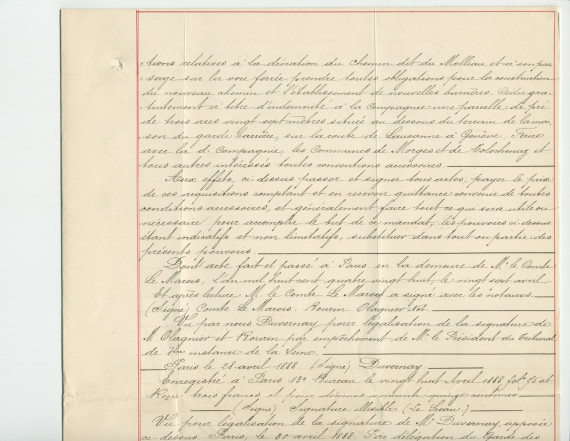 tions relatives à la déviation du chemin dit du Molliau et à son pas
sage sur la voie ferrée prendre toutes obligations pour la construction
du nouveau chemin et l'établissement de nouvelles barrières. Céder gra-
tuitement à titre d'indemnité à la Compagnie une parcelle de pré
de trois ares vingt sept mètres situé au dessous du terrain de la mai
son du garde barrière, sur la route de Lausanne à Genève. Faire
avec la d. Compagnie, les Communes de Morges et de Tolochenaz et
tous autres intéressés toutes conventions accessoires.
Aux effets ci dessus passer et signer tous actes, payer le prix
de ces acquisitions comptant et en recevoir quittance convenir de toutes
conditions accessoires, et généralement faire tout ce qui sera utile ou
nécessaire pour accomplir le but de ce mandat, les pouvoirs ci dessus
étant indicatifs et non limitatifs, substituer dans tout ou partie des
présents pouvoirs
Dont acte fait et passé à Paris en la demeure de Mr. le Comte
Le Marois, L'an mil huit cent quatre vingt huit, le vingt sept avril
Et après lecture M. le Comte Le Marois a signé avec les notaires.
(Signé) Comte Le Marois. Olagnier Not.
Vu par nous Duvernay pour légalisation de la signature de
M. Olagnier et par empêchement de Mr. le Président du Tribunal
de 1ère instance de la Seine.
Paris le 28 avril 1888 (Signé) Duvernay
Enregistré à Paris 13e Bureau le vingt huit Avril 1888, fol.
Reçu trois francs et pour centimes
(Signé) Signature illisible (Le Sceau)
Vu pour légalisation de la signature de Mr. Duvernay, apposée
ci dessus Paris, le 30 avril 1888. Par délégation du Garde des